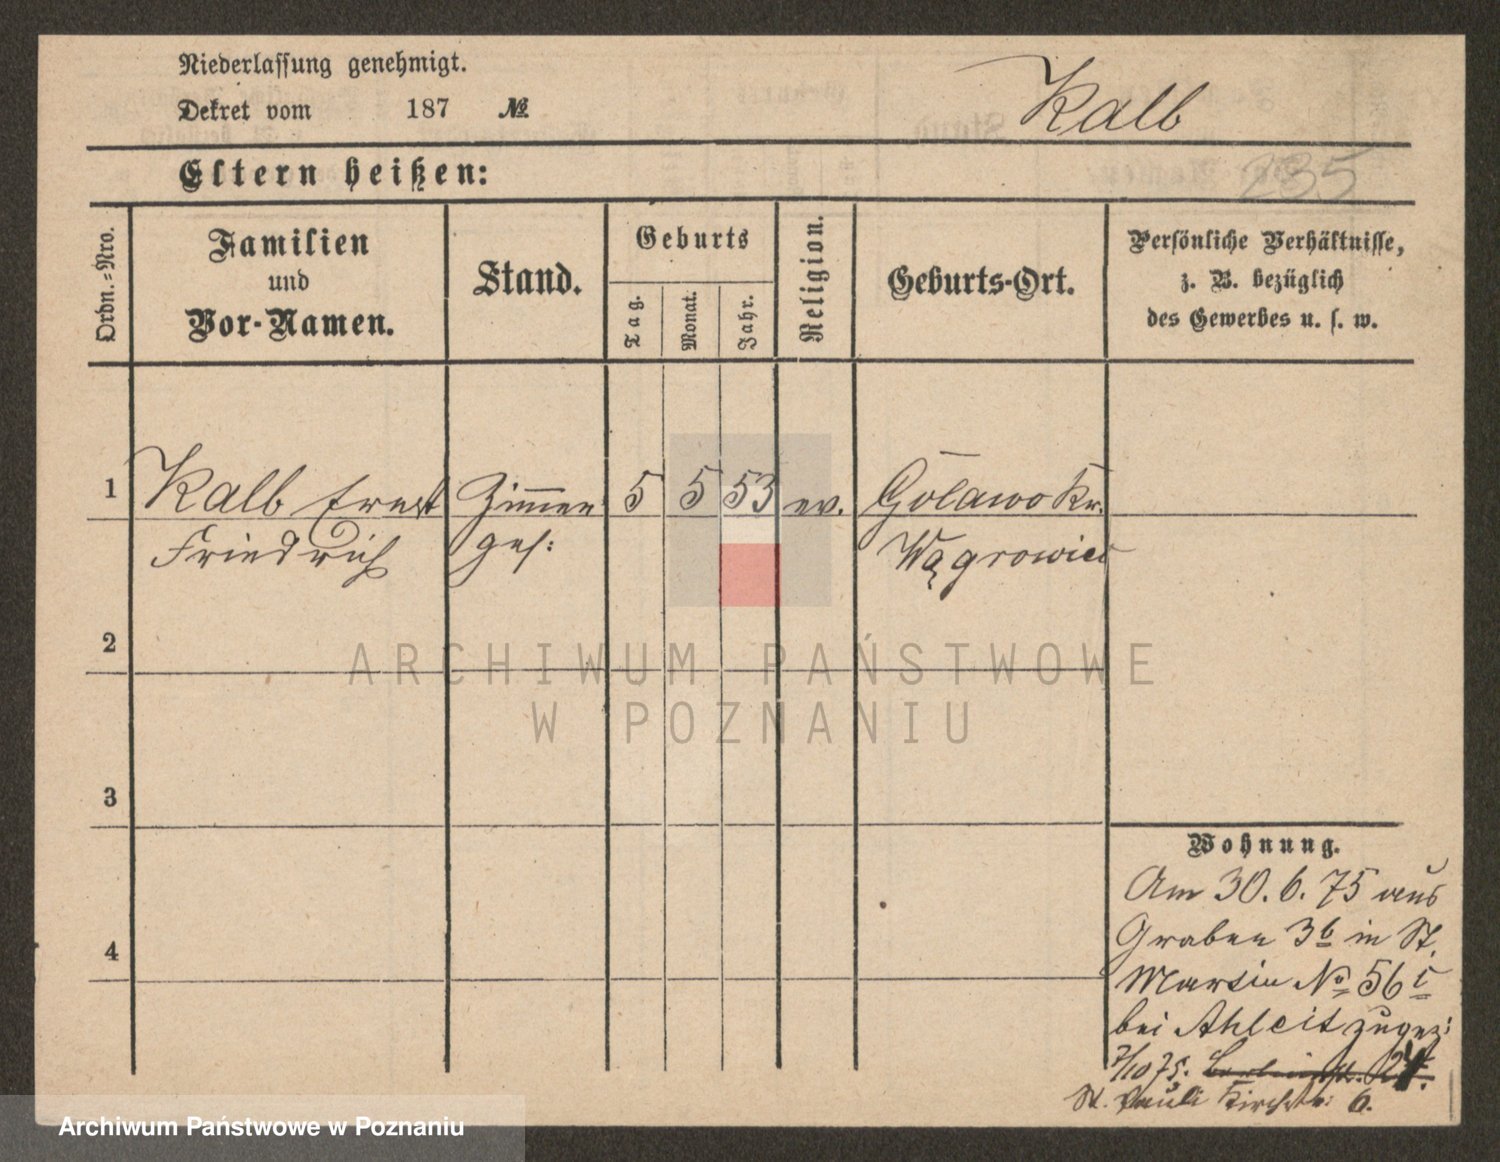 Niederlassung genehmigt.
Dekret vom 187 №
Kalb
235
Eltern heißen:
Ordn.-Nro.
Familien
und
Vor-Namen.
Stand.
Geburts
Tag.
Monat.
Jahr.
Religion.
Geburts-Ort.
Persönliche Verhältnisse,
z. B. bezüglich
des Gewerbes u. s. w.
1 Kalb Ernst Zimmer 5 5 53 ev. Golawo Kr.
Friedrich ges: Wągrowiec
2
ARCHIWUM PAŃSTWOWE
W POZNANIU
3
4
Wohnung.
Am 30. 6. 75 aus
Graben 3b in St.
Martin No 56
bei Ahleit zugez:
7/10 75.
St. Pauli Kirchstr: 6.
Archiwum Państwowe w Poznaniu